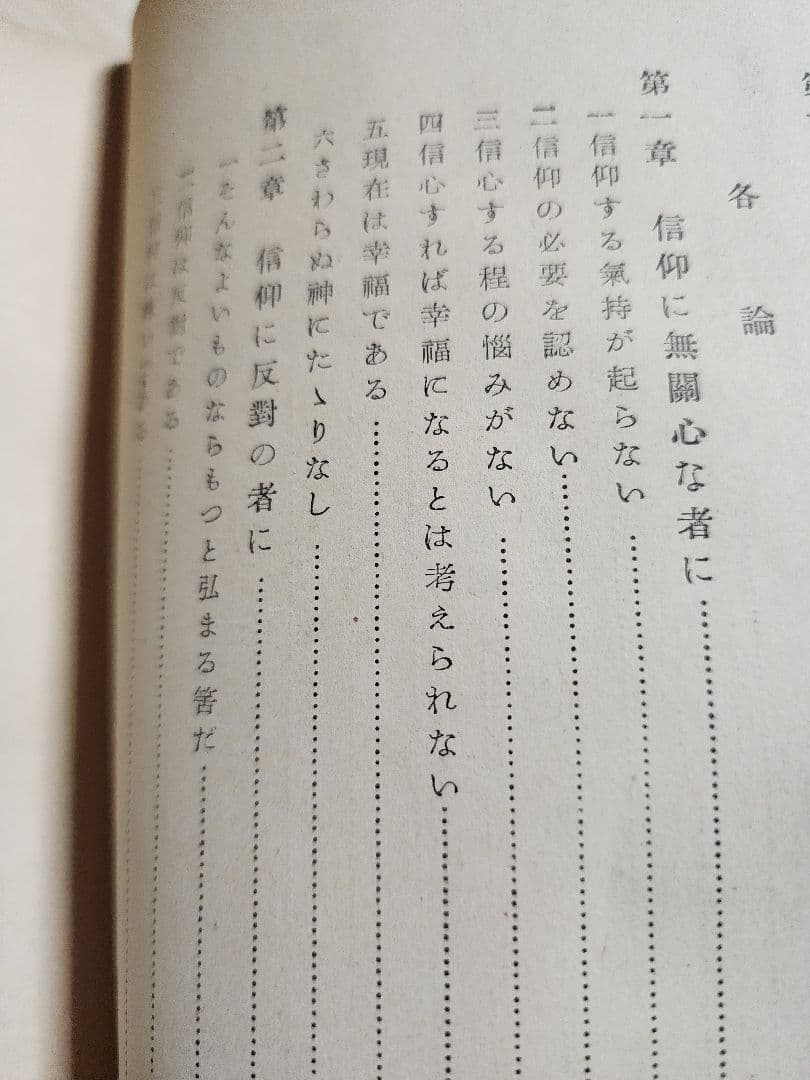 各論
第一章 信仰に無關心な者に
一 信仰する氣持が起らない
二 信仰の必要を認めない
三 信心する程の悩みがない
四 信心すれば幸福になるとは考えられない
五 現在は幸福である
六 さわらぬ神にたゝりなし
第二章 信仰に反對の者に
一 そんなよいものならもつと弘まる筈だ
二 信仰は反對である